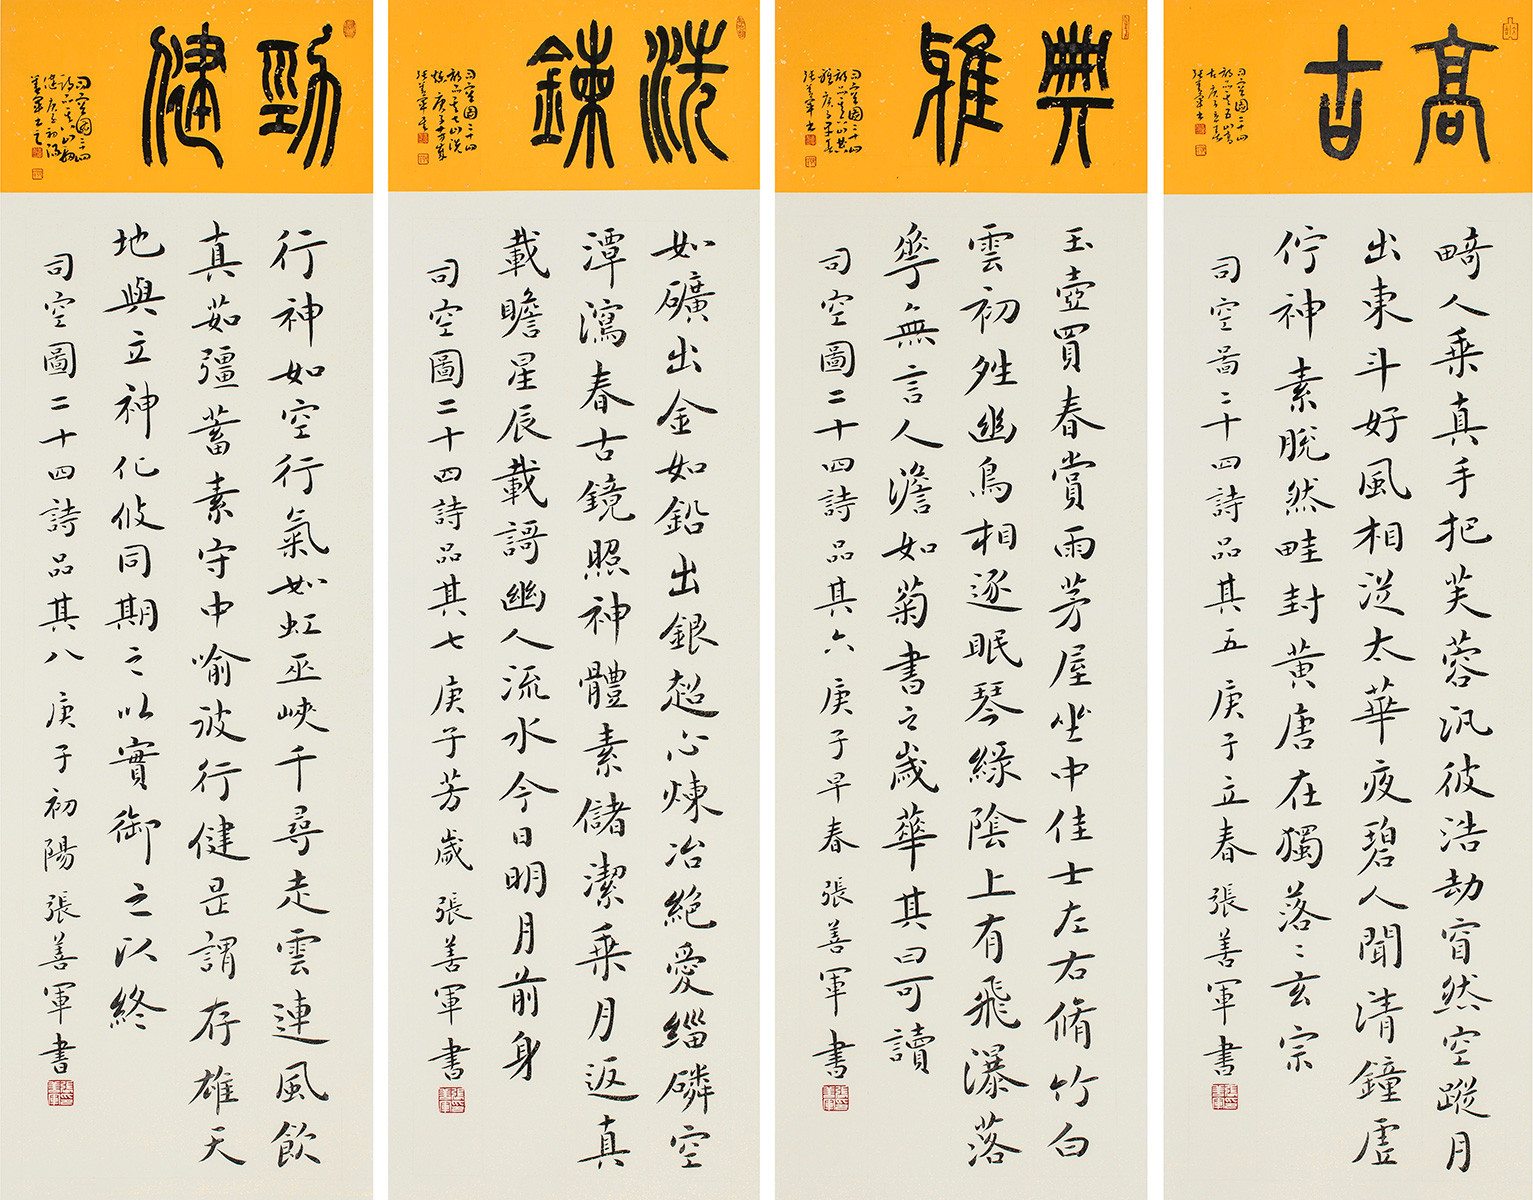 高古
司空圖二十四
詩品其五高
古庚子立春
張善軍書
畸人乘真手把芙蓉汎彼浩劫窅然空蹤月
出東斗好風相從太華夜碧人聞清鐘虛
佇神素脫然畦封黃唐在獨落〻玄宗
司空圖二十四詩品其五 庚子立春 張善軍書
典雅
司空圖二十四
詩品其六典
雅庚子早春
張善軍書
玉壺買春賞雨茅屋坐中佳士左右脩竹白
雲初夝幽鳥相逐眠琴綠陰上有飛瀑落
華無言人澹如菊書之歲華其曰可讀
司空圖二十四詩品其六 庚子早春 張善軍書
洗鍊
司空圖二十四
詩品其七洗
煉庚子芳歲
張善軍書
如礦出金如鉛出銀超心煉冶絕愛緇磷空
潭瀉春古鏡照神體素儲潔乘月返真
載瞻星辰載謌幽人流水今日明月前身
司空圖二十四詩品其七 庚子芳歲 張善軍書
勁健
司空圖二十四
詩品其八勁
健庚子初陽
善軍書之
行神如空行氣如虹巫峽千尋走雲連風飲
真茹彊蓄素守中喻彼行健是謂存雄天
地與立神化攸同期之以實御之以終
司空圖二十四詩品其八 庚子初陽 張善軍書